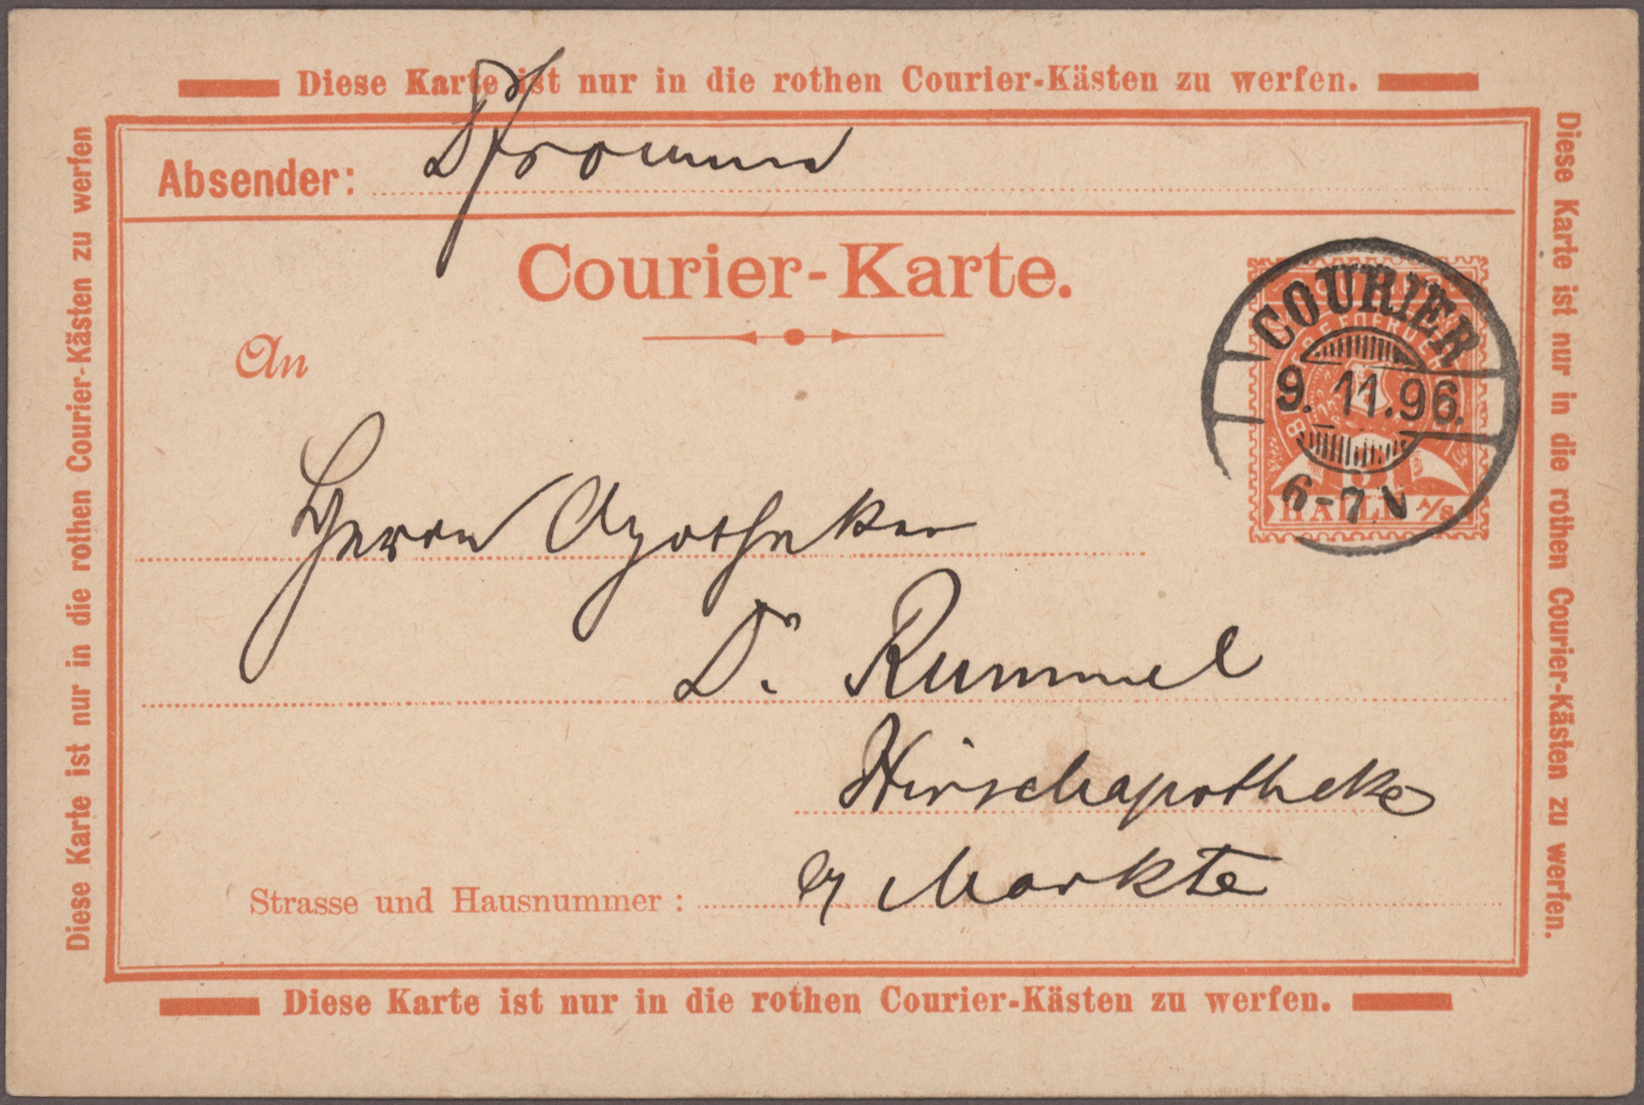 Diese Karte ist nur in die rothen Courier-Kästen zu werfen.
Absender:
Courier-Karte.
An
COURIER
9. 11.96.
6-7 V
HALLE a/S.
Herrn Apotheker
Dr. Rummel
Hirschapotheke
Markte
Strasse und Hausnummer :
Diese Karte ist nur in die rothen Courier-Kästen zu werfen.
Diese Karte ist nur in die rothen Courier-Kästen zu werfen
Diese Karte ist nur in die rothen Courier-Kästen zu werfen.